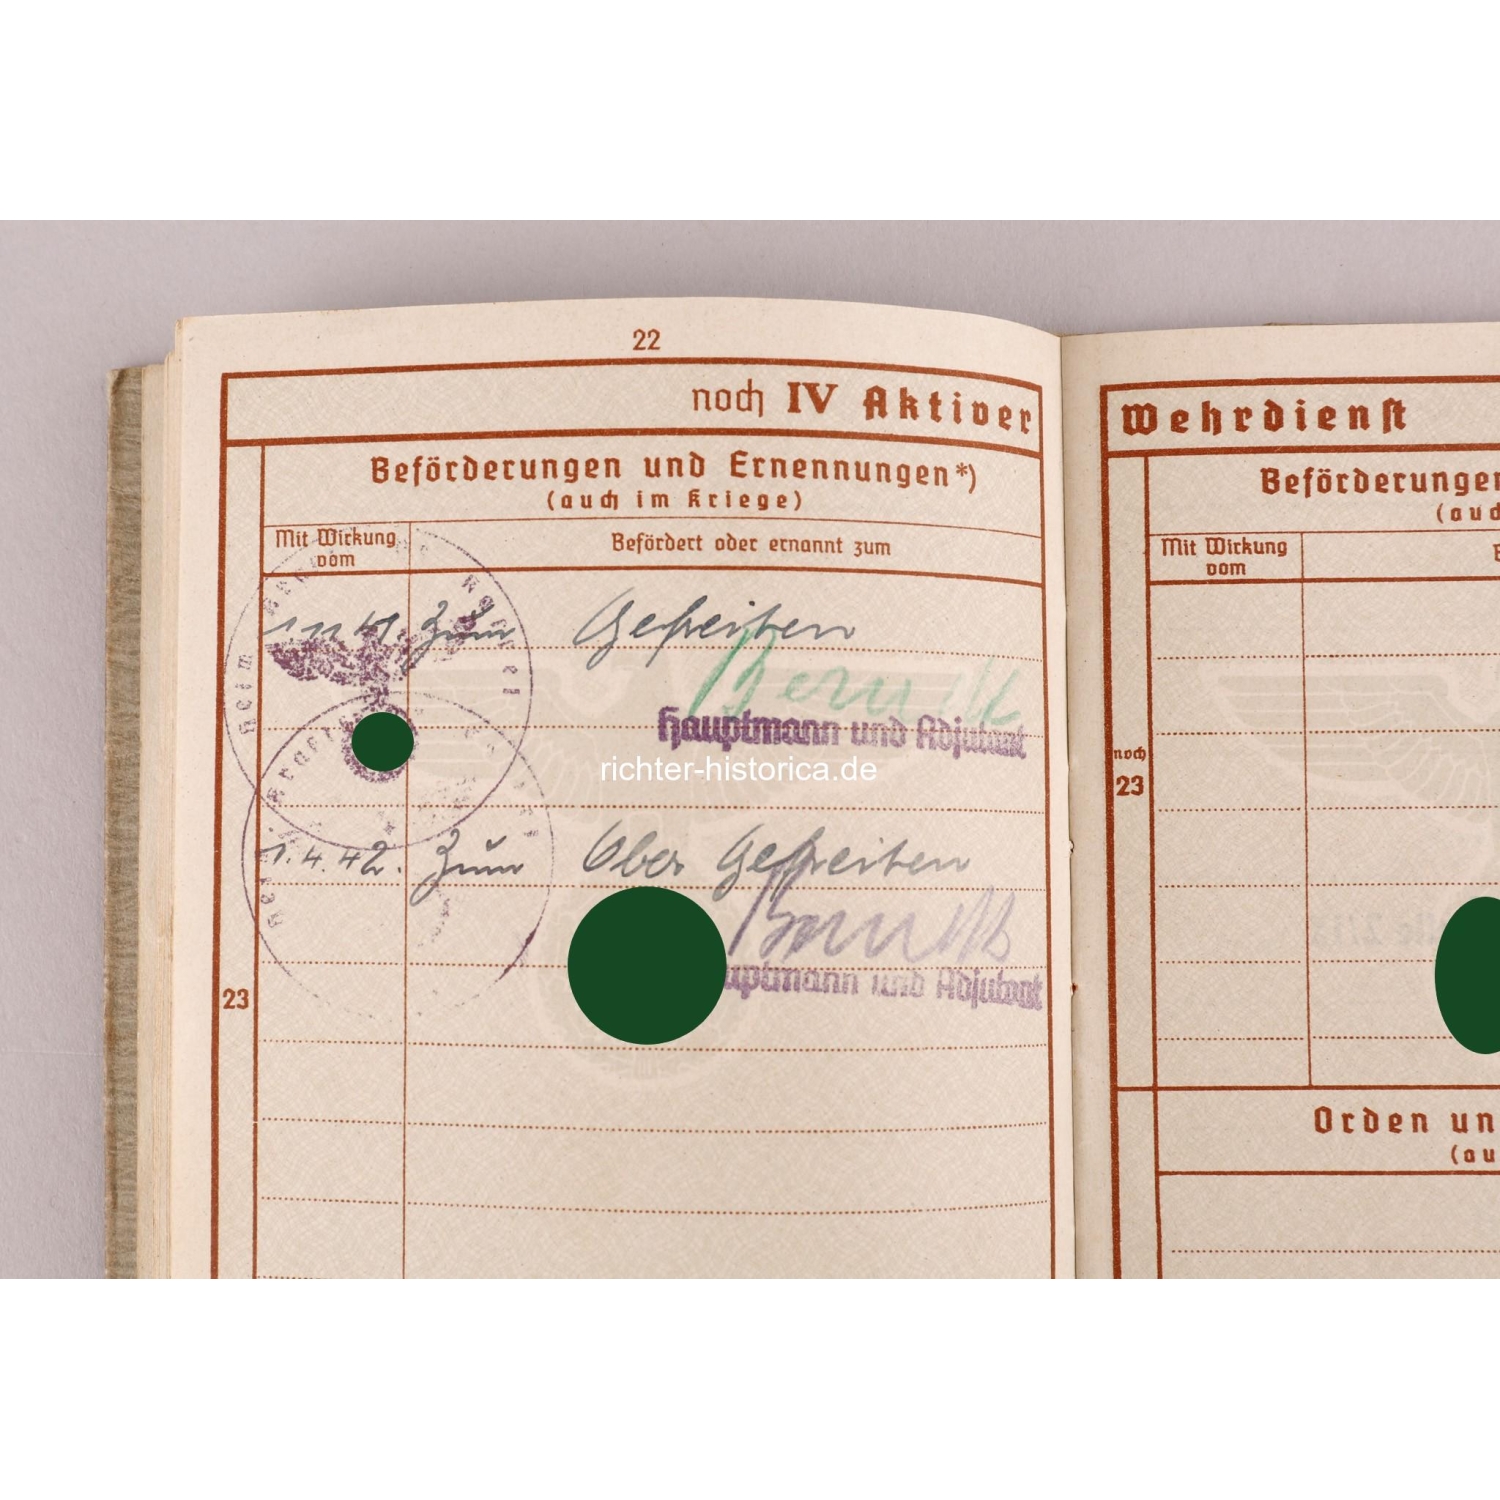 22
noch IV Aktiver
Beförderungen und Ernennungen*)
(auch im Kriege)
Mit Wirkung
vom
Befördert oder ernannt zum
1 11 41 zum Gefreiten
Hauptmann und Adjutant
richter-historica.de
1.4.42. zum Ober Gefreiten
uptmann und Adjutant
23
Wehrdienst
Beförderungen
(auc
Mit Wirkung
vom
noch
23
Orden un
(au